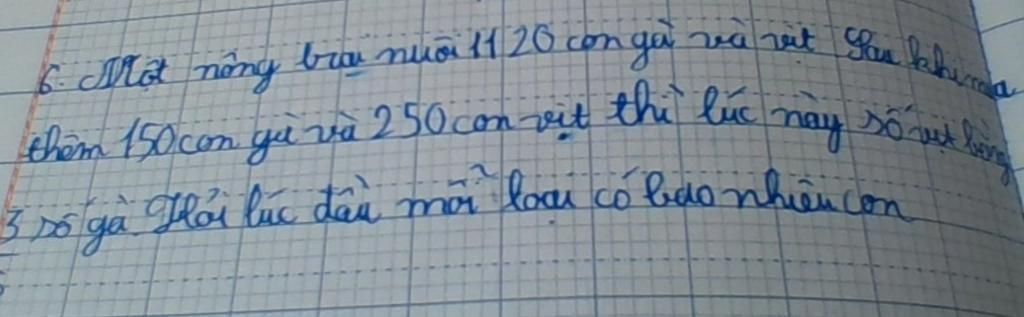 6. Một nông trại nuôi 1120 con gà và vịt Sau khi mua
thêm 150 con gà và 250 con vịt thì lúc này số vịt bằng
3 số gà Hỏi lúc đầu mỗi loại có bao nhiêu con